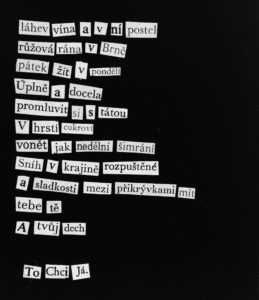 láhev vína a v ní postel
růžová rána v Brně
pátek žít v pondělí
Úplně a docela
promluvit si s tátou
V hrsti cukroví
vonět jak nedělní šimrání
Sníh v krajině rozpuštěné
a sladkosti mezi přikrývkami mít
tebe tě
A tvůj dech
To Chci Já.